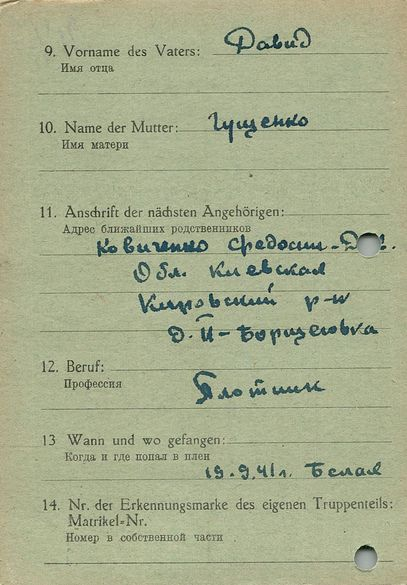 9. Vorname des Vaters: Давид
Имя отца
10. Name der Mutter: Гущенко
Имя матери
11. Anschrift der nächsten Angehörigen:
Адрес ближайших родственников
Ковиченко
Обл. Киевская
Кировский р-н
Д. П-Борщеговка
12. Beruf:
Профессия
Плотник
13 Wann und wo gefangen:
Когда и где попал в плен
19.9.41г. Белая
14. Nr. der Erkennungsmarke des eigenen Truppenteils:
Matrikel-Nr.
Номер в собственной части